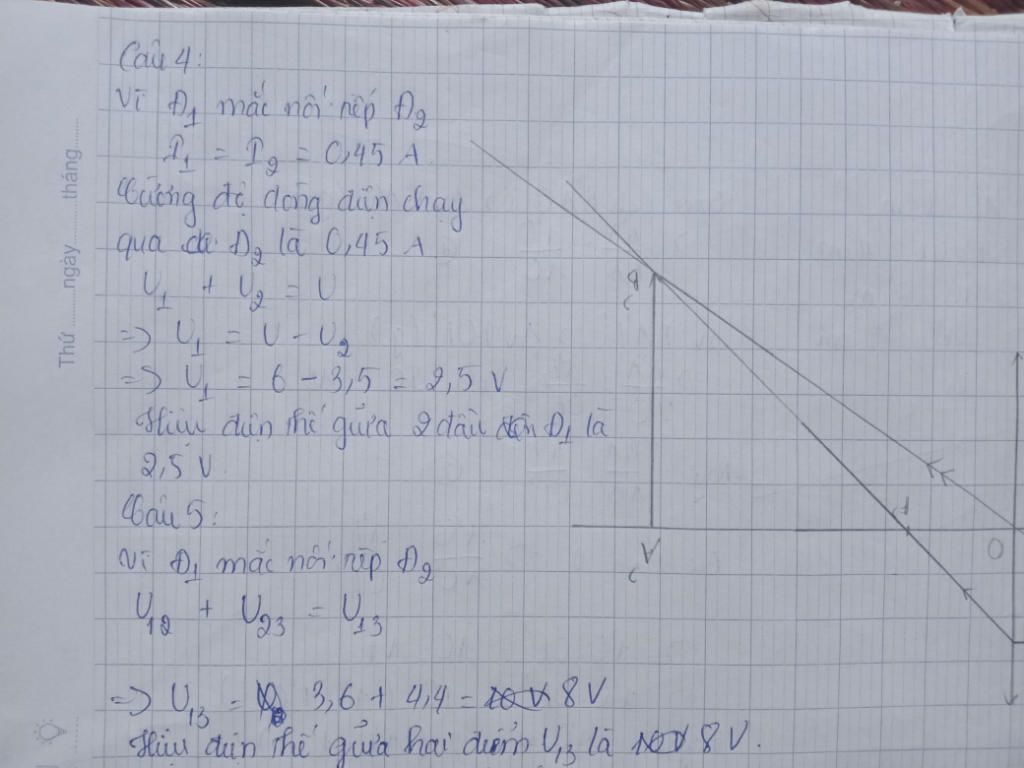 Câu 4:
Vì Đ₁ mắc nối tiếp Đ₂
I₁ = I₂ = 0,45 A
Cường độ dòng điện chạy
qua Đ₂ là 0,45 A
U₁ + U₂ = U
=> U₁ = U - U₂
=> U₁ = 6 - 3,5 = 2,5 V
Hiệu điện thế giữa 2 đầu Đ₁ là
2,5 V
Câu 5:
Vì Đ₁ mắc nối tiếp Đ₂
U₁₂ + U₂₃ = U₁₃
=> U₁₃ = 3,6 + 4,4 = 8 V
Hiệu điện thế giữa hai điểm U₁₃ là 8 V.
Thứ ........ ngày ........ tháng ........
O